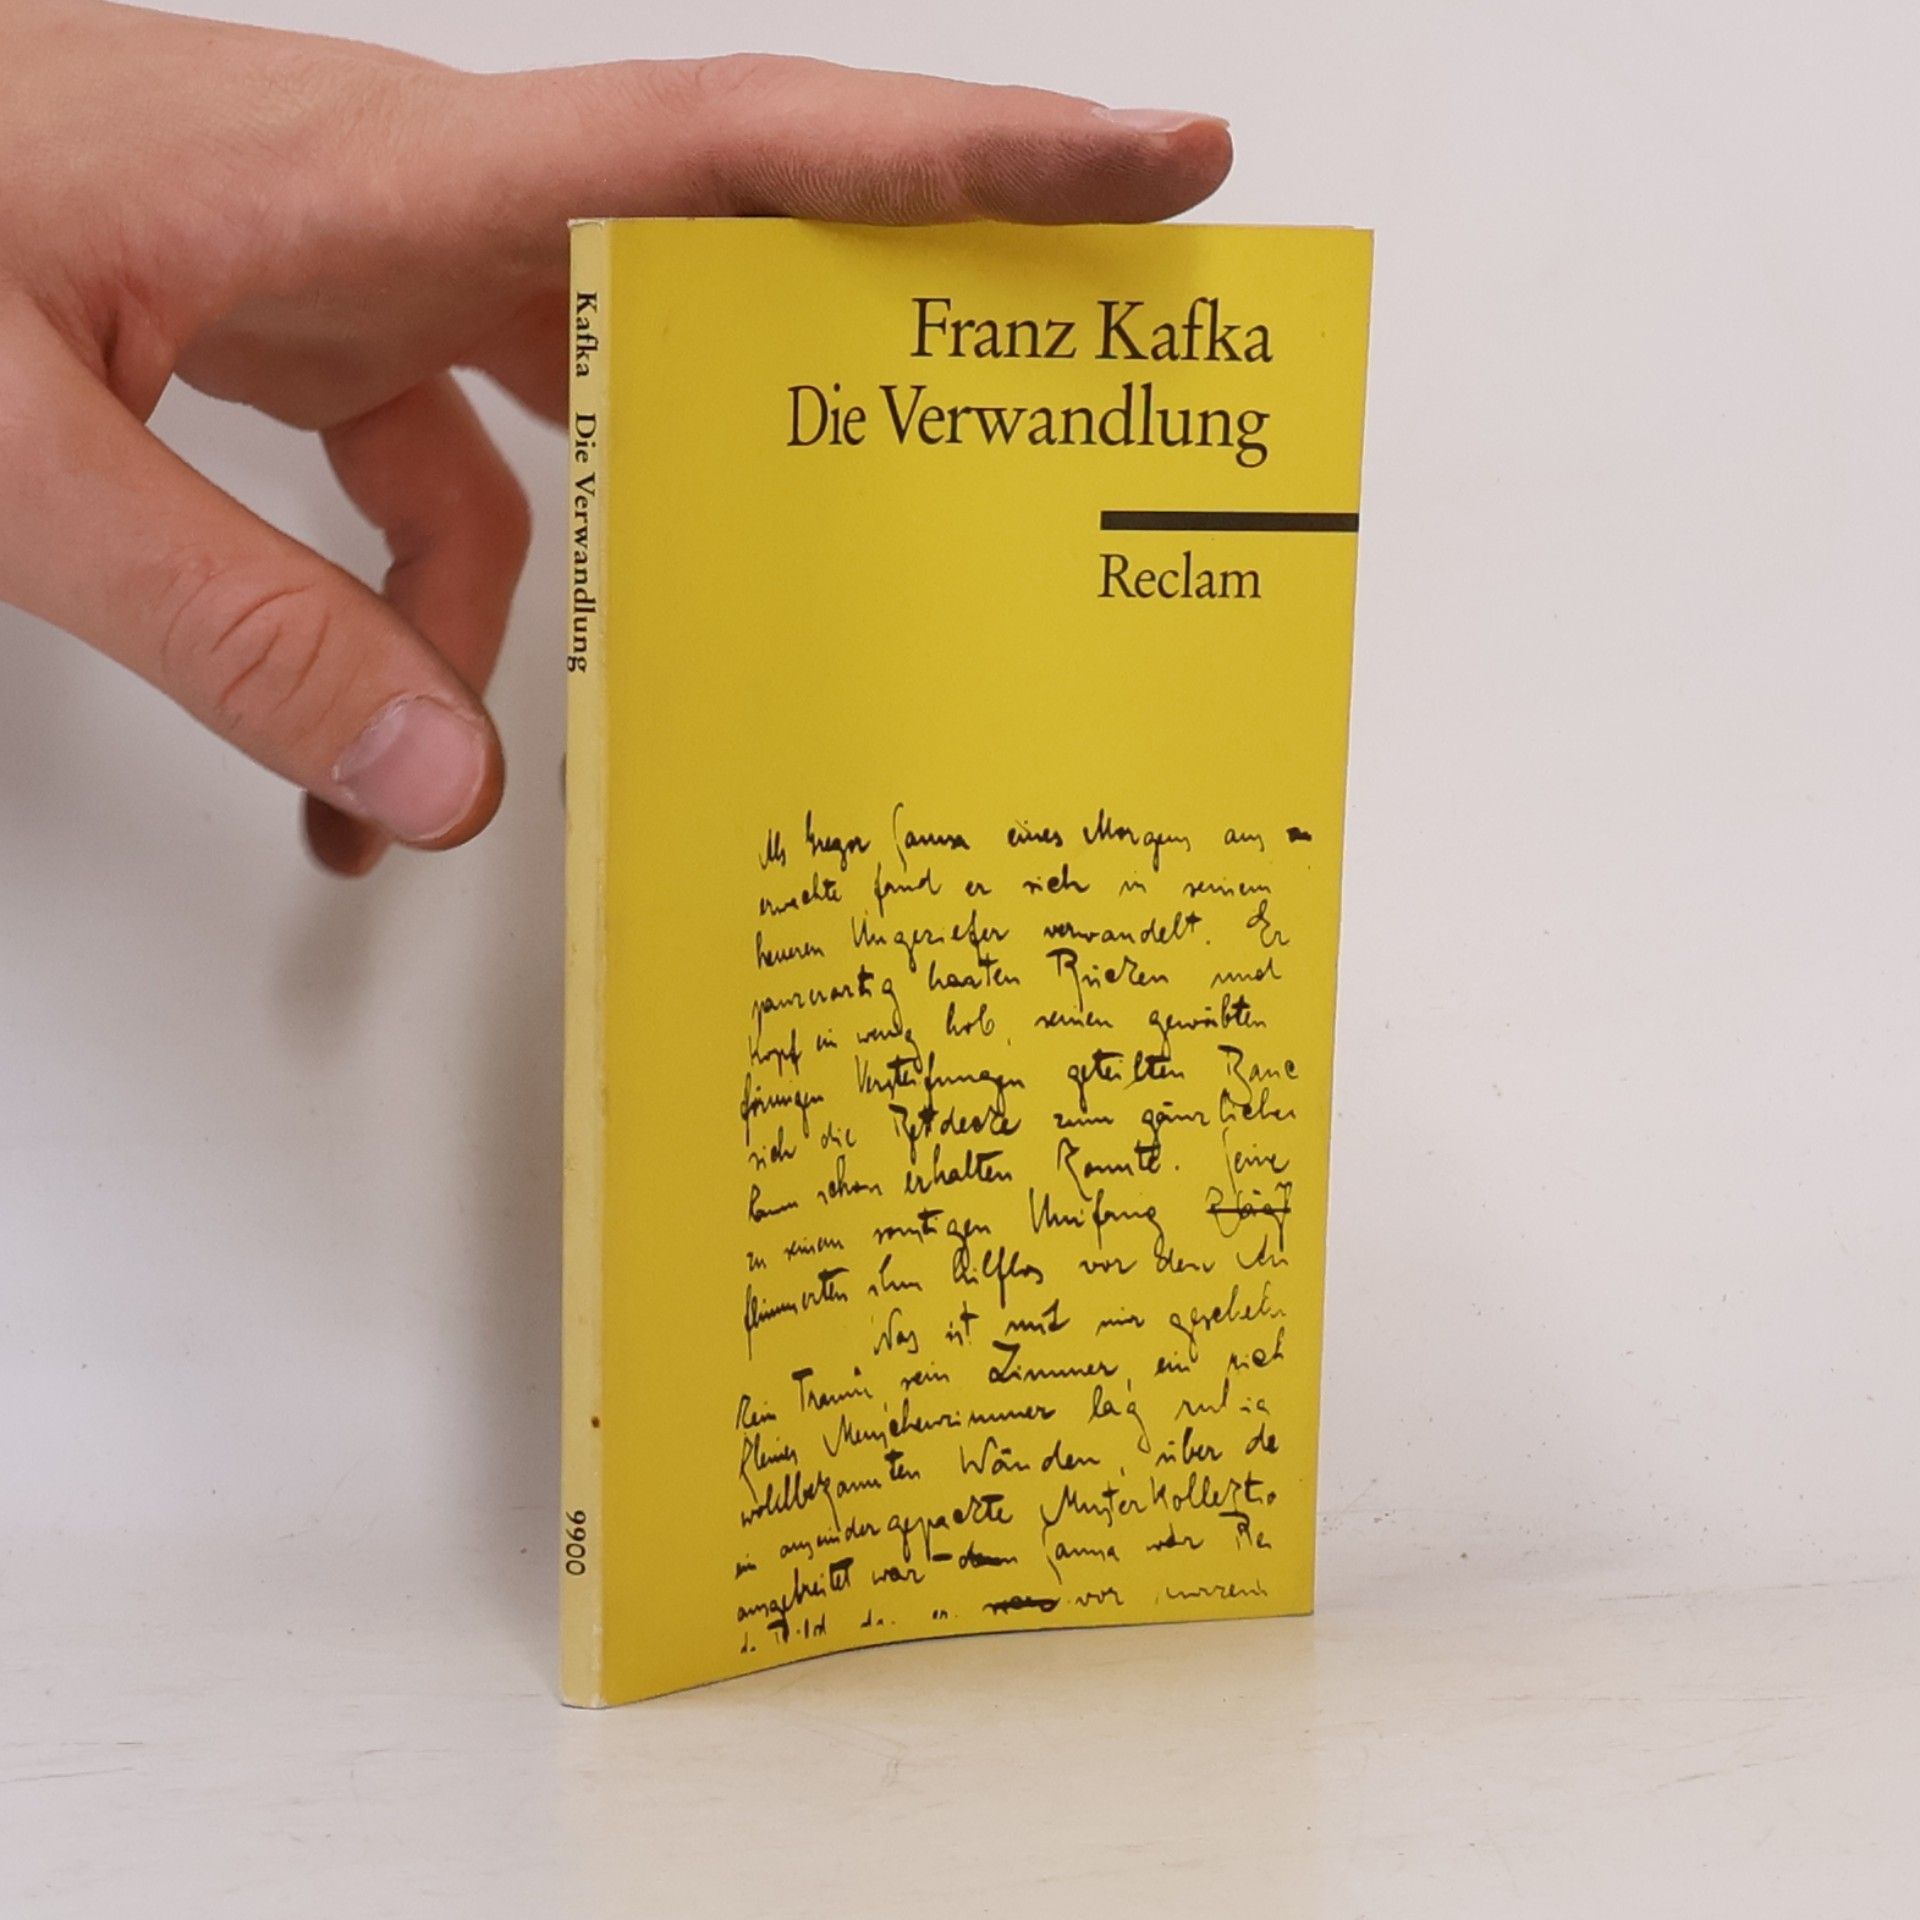 Franz Kafka
Die Verwandlung
Reclam
Kafka Die Verwandlung
9900
Als Gregor Samsa eines Morgens aus
erwachte fand er sich in seinem
heueren Ungeziefer verwandelt. Er
panzerartig harten Rücken und
Kopf ein wenig hob, seinen gewölbten
förmigen Versteifungen geteilten Bauc
sich die Bettdecke zum gänzlichen
kaum schon erhalten konnte. Seine
zu seinem sonstigen Umfang
flimmerten ihm hilflos vor den Au
Was ist mit mir gescheh
Kein Traum, sein Zimmer, ein rich
kleines Menschenzimmer lag ruhig
wohlbekannten Wänden, über de
ein auseinandergepackte Musterkollektio
ausgebreitet war – Samsa war Rei
vor